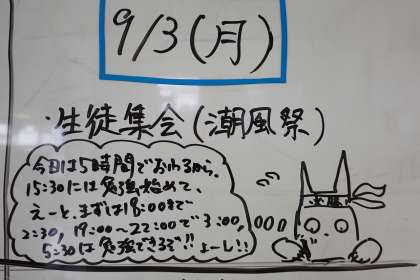 9/3(月)
・生徒集会(潮風祭)
今日は5時間でおわるから。
15:30には勉強始めて、
えーと、まずは18:00まで
2:30, 19:00〜22:00で3:00,
5:30は勉強できるで!!よーし!!
必勝